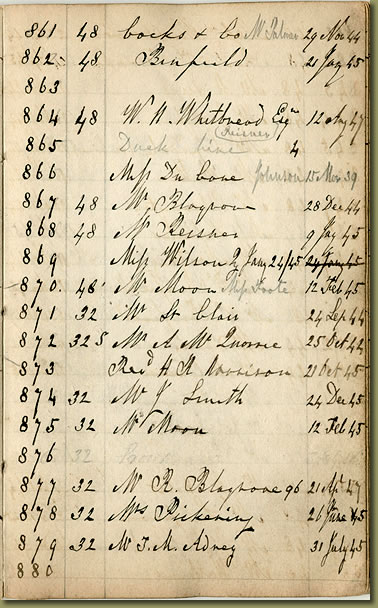 861 48 Cocks & Co Mr Palmer 29 Nov 44
862 48 Binfield 21 Jany 45
863
864 48 W. H. Whitbread Esqre 12 Any 47
865 Duck line Reisner 4
866 Miss Du Cane Johnson 15 Mar 39
867 48 Mr Blagrove 28 Dec 44
868 48 Mr Reisner 9 Jay 45
869 Miss Wilson 2 Jany 24/45
870 48 Mr Moon Miss Foote 12 Feb 45
871 32 Mr St Clair 24 Sep 44
872 32 S Mr A Mc 25 Oct 42
873 Revd H H 21 Oct 45
874 32 Mr J Smith 24 Dec 45
875 32 Mr Moon 12 Feb 45
876 32
877 32 Mr R. Blagrove 96 21 Ap 47
878 32 Mrs Pickering 26 June 45
879 32 Mr T. M. Adney 31 July 45
880